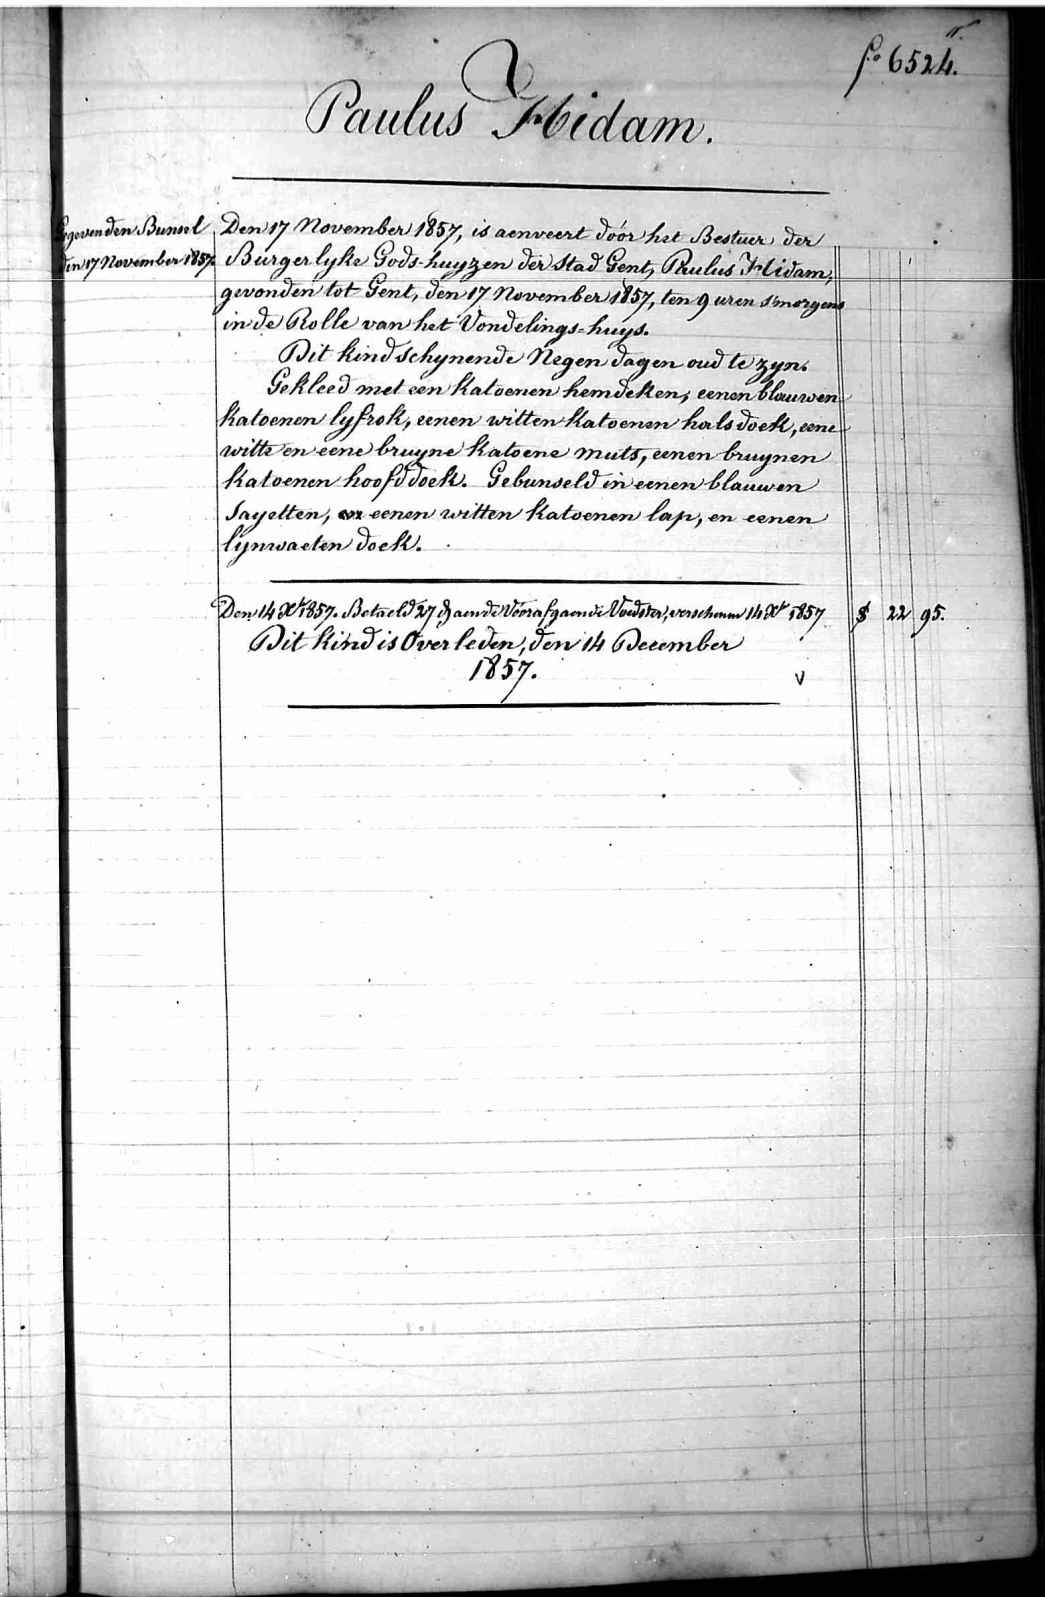 fo 6524.
Paulus Hidam.
Gegeven den Bunsel
den 17 November 1857.
Den 17 November 1857, is aenveert dóór het Bestuer der
Burgerlyke Gods-huyzen der Stad Gent, Paulus Hidam,
gevonden tot Gent, den 17 November 1857, ten 9 uren s'morgens
in de Rolle van het Vondelings-huys.
Dit kind schynende Negen dagen oud te zyn.
Gekleed met een katoenen hemdeken, eenen blauwen
katoenen lyfrok, eenen witten katoenen halsdoek, eene
witte en eene bruyne katoene muts, eenen bruynen
katoenen hoofddoek. Gebunseld in eenen blauwen
Sayetten, eenen witten katoenen lap, en eenen
lynwaeten doek.
Den 14 Xr 1857. Betaeld 27 d aen de Voorafgaende Voedster, verschenen 14 Xr 1857 $ 22 95.
Dit kind is Overleden, den 14 December
1857. V